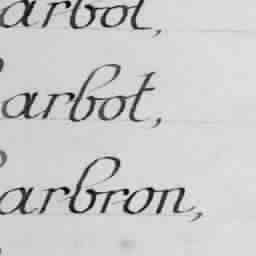 arbot,
arbot,
arbron,